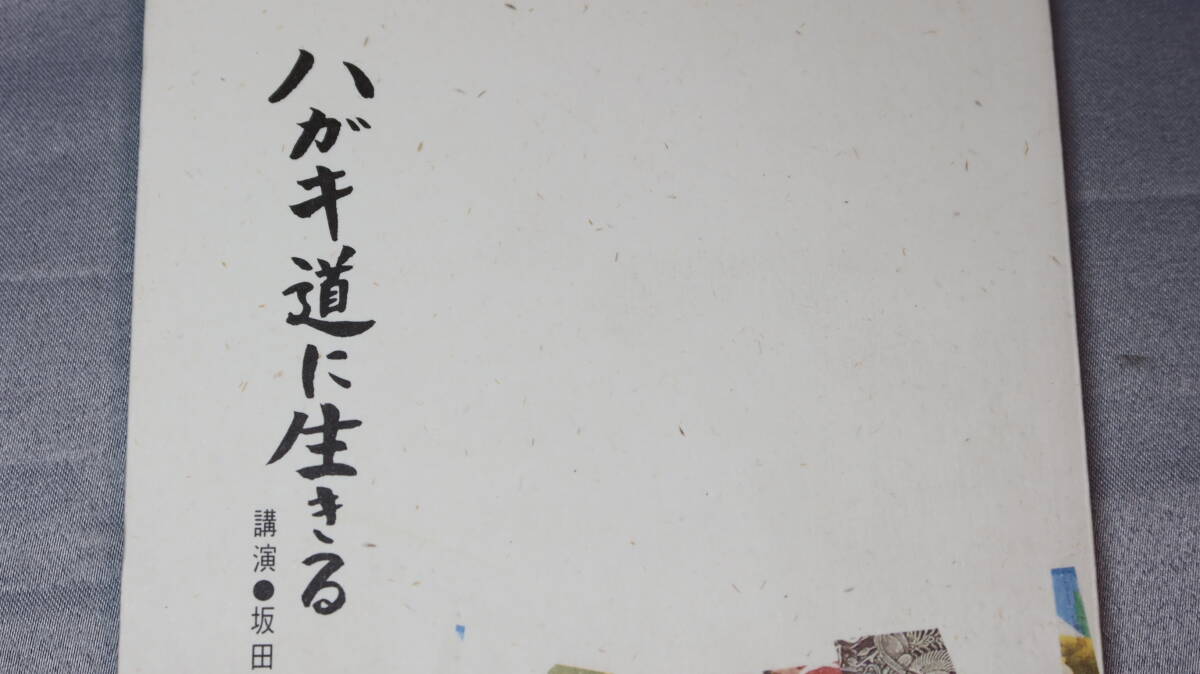 ハガキ道に生きる
講演●坂田